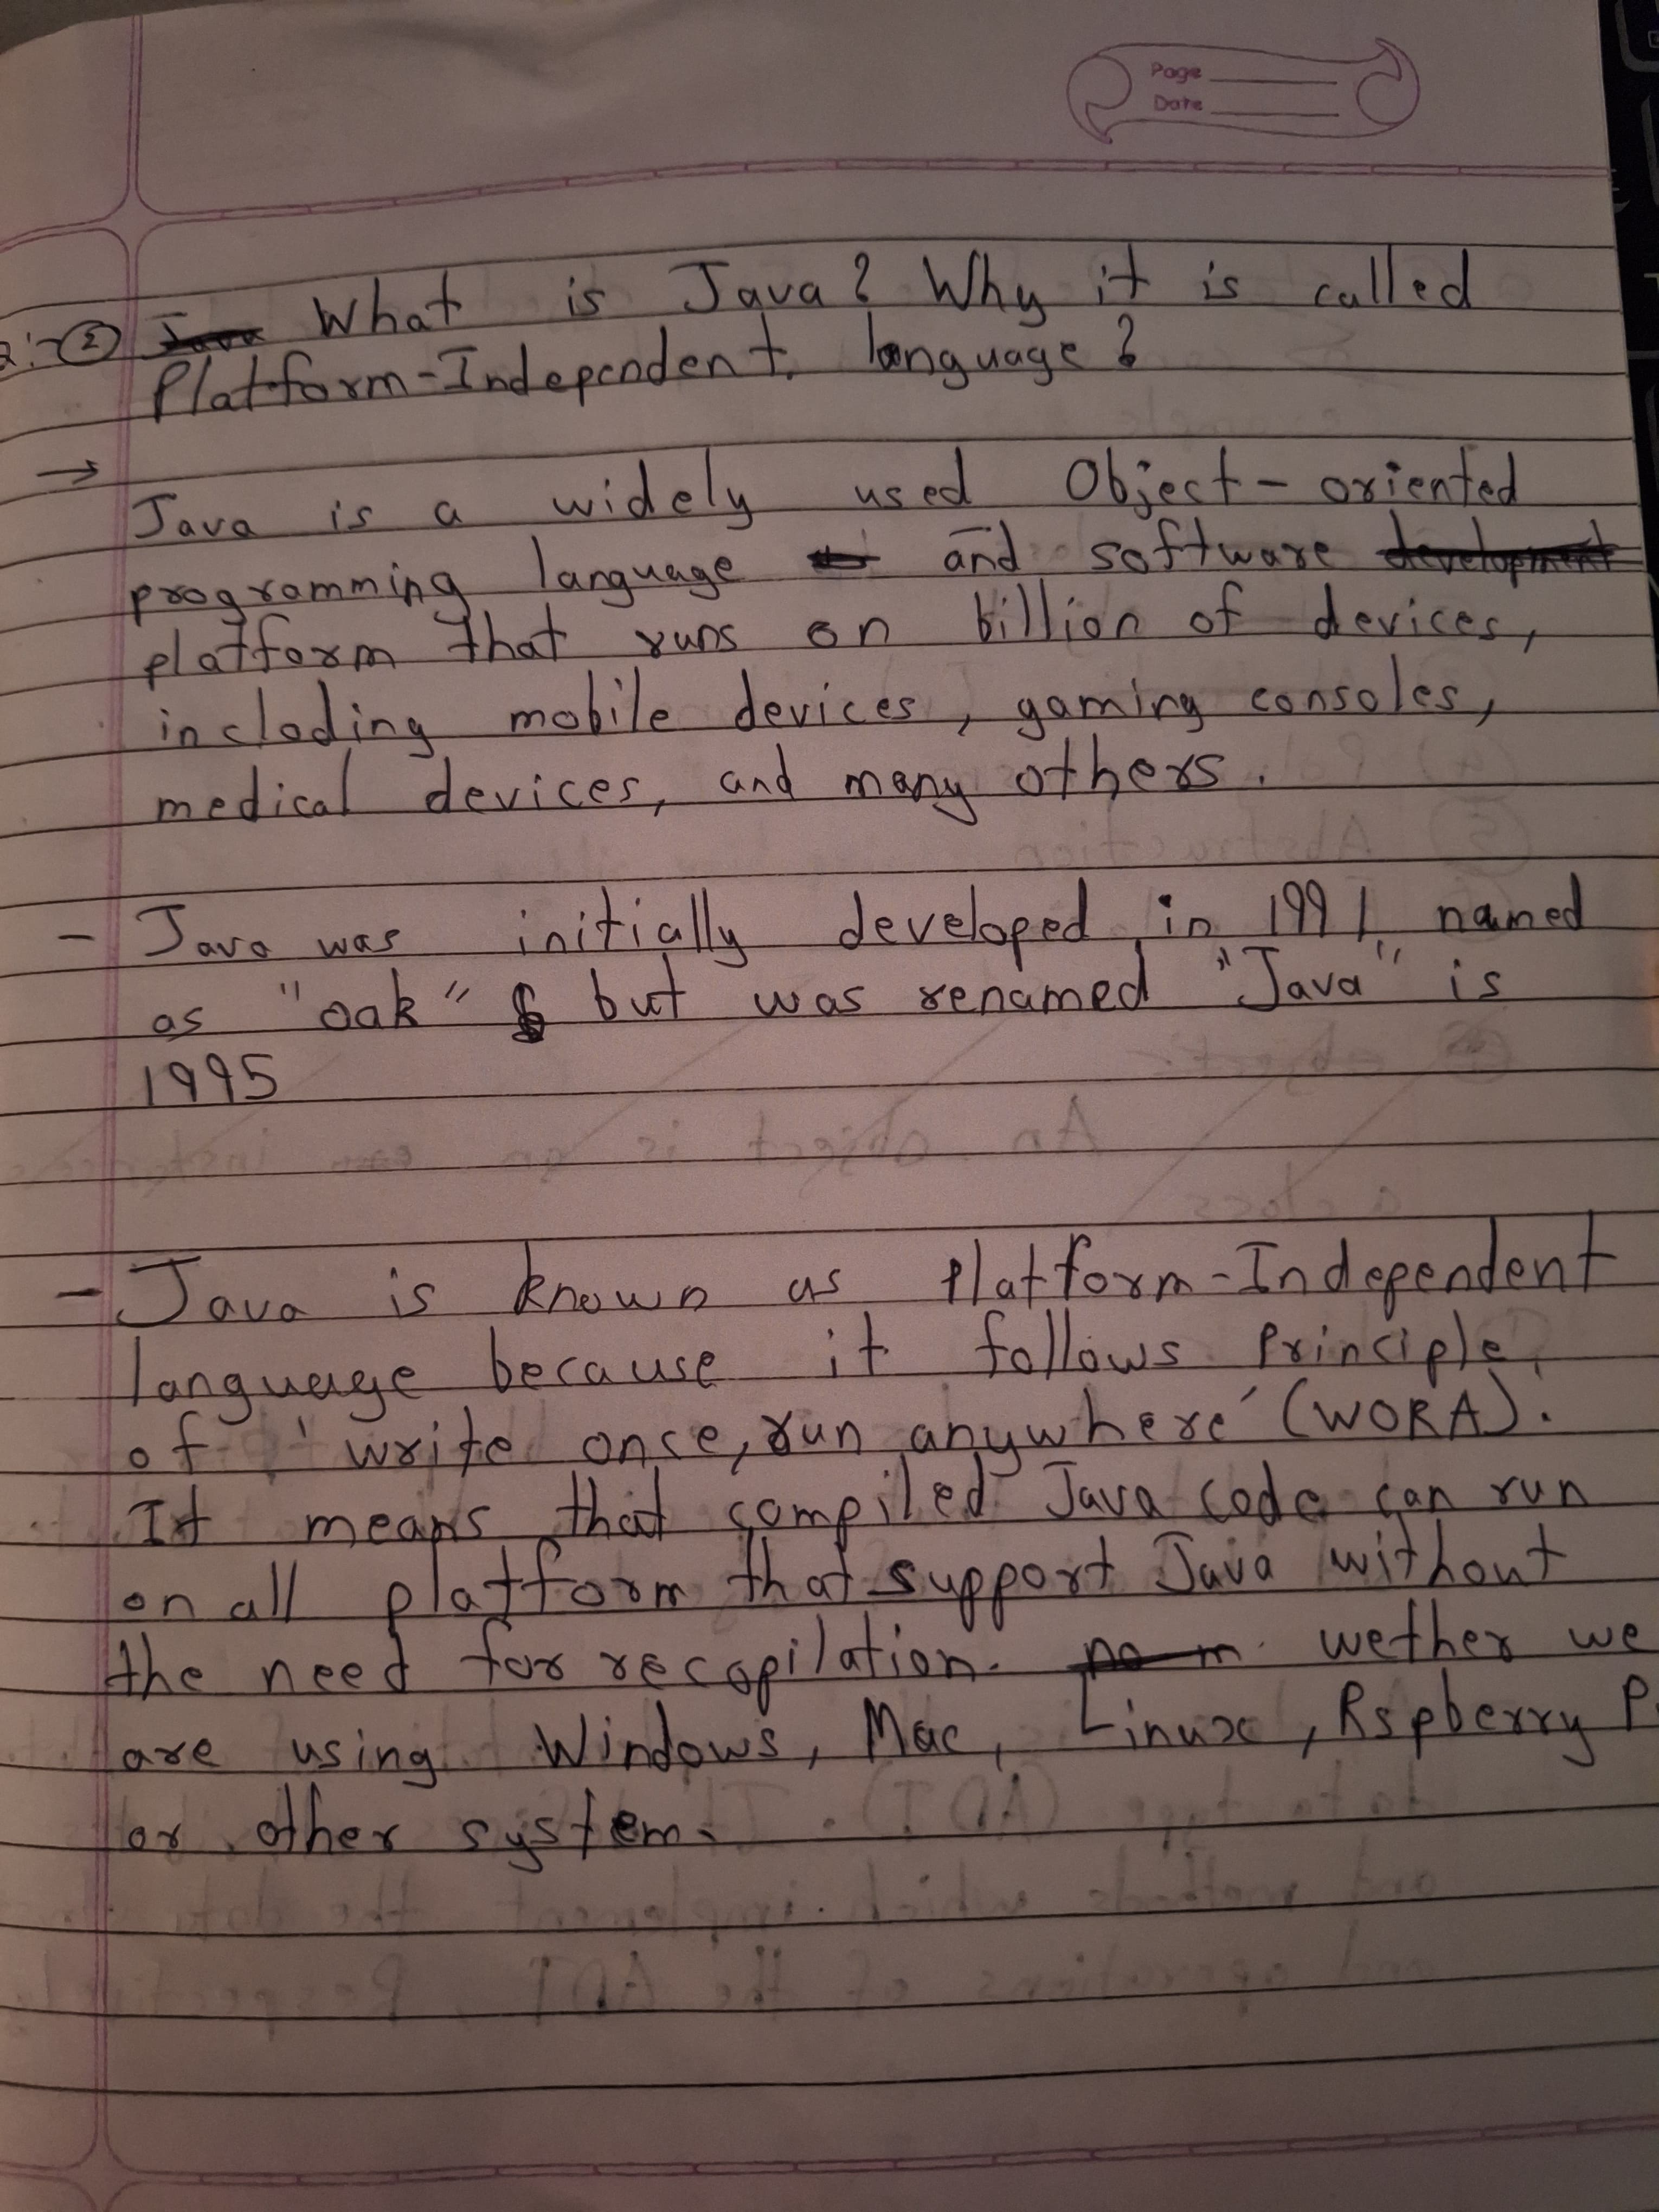 Page
Date
Q:-② Java What is Java? Why it is called
Platform-Independent language?
→
Java is a widely used Object-oriented
programming language and software development
platform that runs on billion of devices,
incloding mobile devices, gaming consoles,
medical devices, and many others.
- Java was initially developed in 1991 named
as "oak" but was renamed "Java" is
1995
- Java is known as Platform-Independent
language because it follows Principle
of 'write once, run anywhere' (WORA).
It means that compiled Java code can run
on all platform that support Java without
the need for recopilation. wether we
are using Windows, Mac, Linux, Rspberry P
or other system.